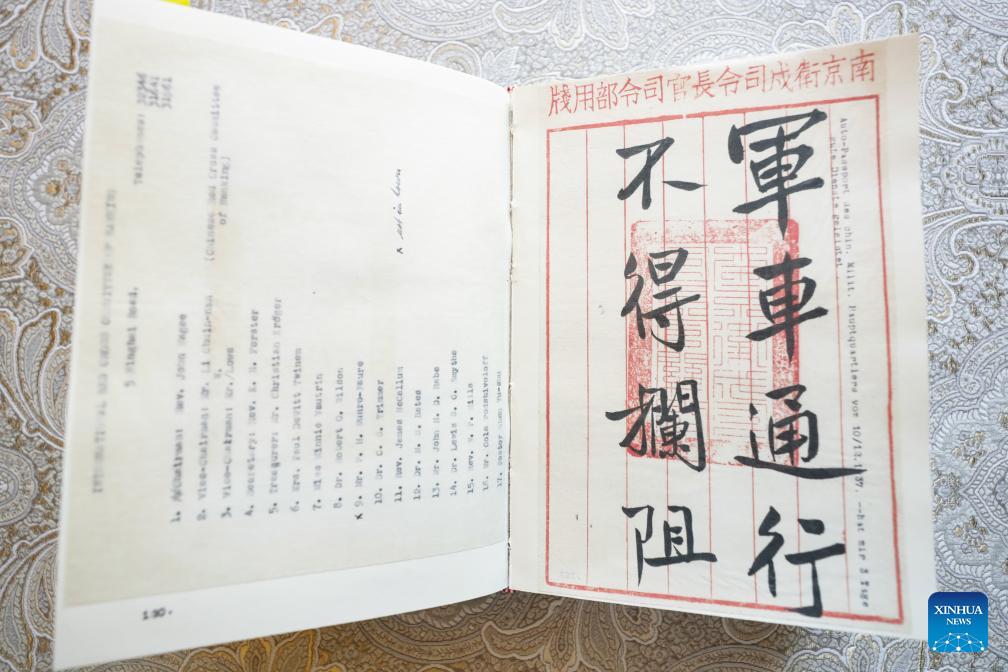 INTERNATIONAL RED CROSS COMMITTEE OF NANKING
5 Ninghai Road. Telephones:
1. Chairman: Rev. John Magee
2. Vice-Chairman: Mr. Li Chuin-nan (Chinese Red Cross Committee
of Nanking)
3. Vice-Chairman: Mr. W. Lowe
4. Secretary: Rev. E. H. Forster
5. Treasurer: Mr. Christian Kröger
6. Mrs. Paul Dewitt Twinem
7. Miss Minnie Vautrin
8. Dr. Robert O. Wilson
x 9. Mr. P. H. Munro-Faure
10. Dr. C. S. Trimmer
11. Rev. James McCallum
12. Dr. M. S. Bates
13. Mr. John H. D. Rabe
14. Dr. Lewis S. C. Smythe
15. Rev. W. P. Mills
16. Mr. Cola Podshivoloff
17. Pastor Shen Yu-shu
x not in town
190.
南京衛戍司令長官司令部用牋
軍車通行
不得攔阻
Auto-Passport des chin. Milit. Hauptquartiers vom 10/12.1937. --hat mir 3 Tage
gute Dienste geleistet
XINHUA
NEWS